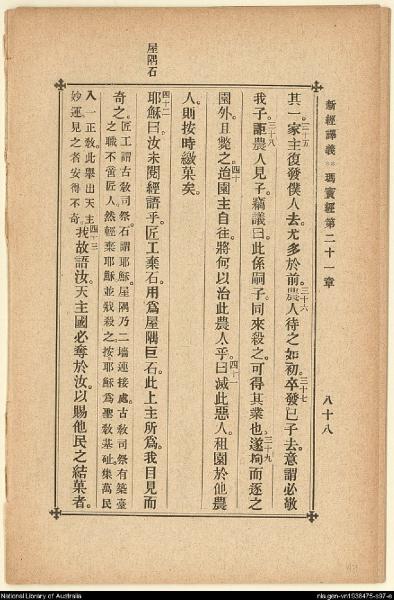 新經譯義 瑪竇經第二十一章 八十八
三十五
其一。家主復發僕人去。尤多於前。農人待之如初。卒發己子去。意謂必敬
三十六
三十七
我子。詎農人見子。竊議曰。此係嗣子。同來殺之。可得其業也。遂拘而逐之
三十八
三十九
園外。且斃之。迨園主自往。將何以治此農人乎。曰。滅此惡人。租園於他農
四十
四十一
人。則按時繳菓矣。
四十二
耶穌曰。汝未閱經語乎。匠工棄石。用為屋隅巨石。此上主所為。我目見而
奇之。匠工謂古敎司祭。石謂耶穌。屋隅乃二墻連接處。古敎司祭有築臺
之職。不啻匠人。然輕棄耶穌。並戕殺之。按耶穌為聖敎基址。集萬民
入一正敎。此舉出天主
妙運。見之者安得不奇。
四十三
我故語汝。天主國必奪於汝。以賜他民之結菓者。
屋隅石
National Library of Australia
nla.gen-vn1938475-s97-e